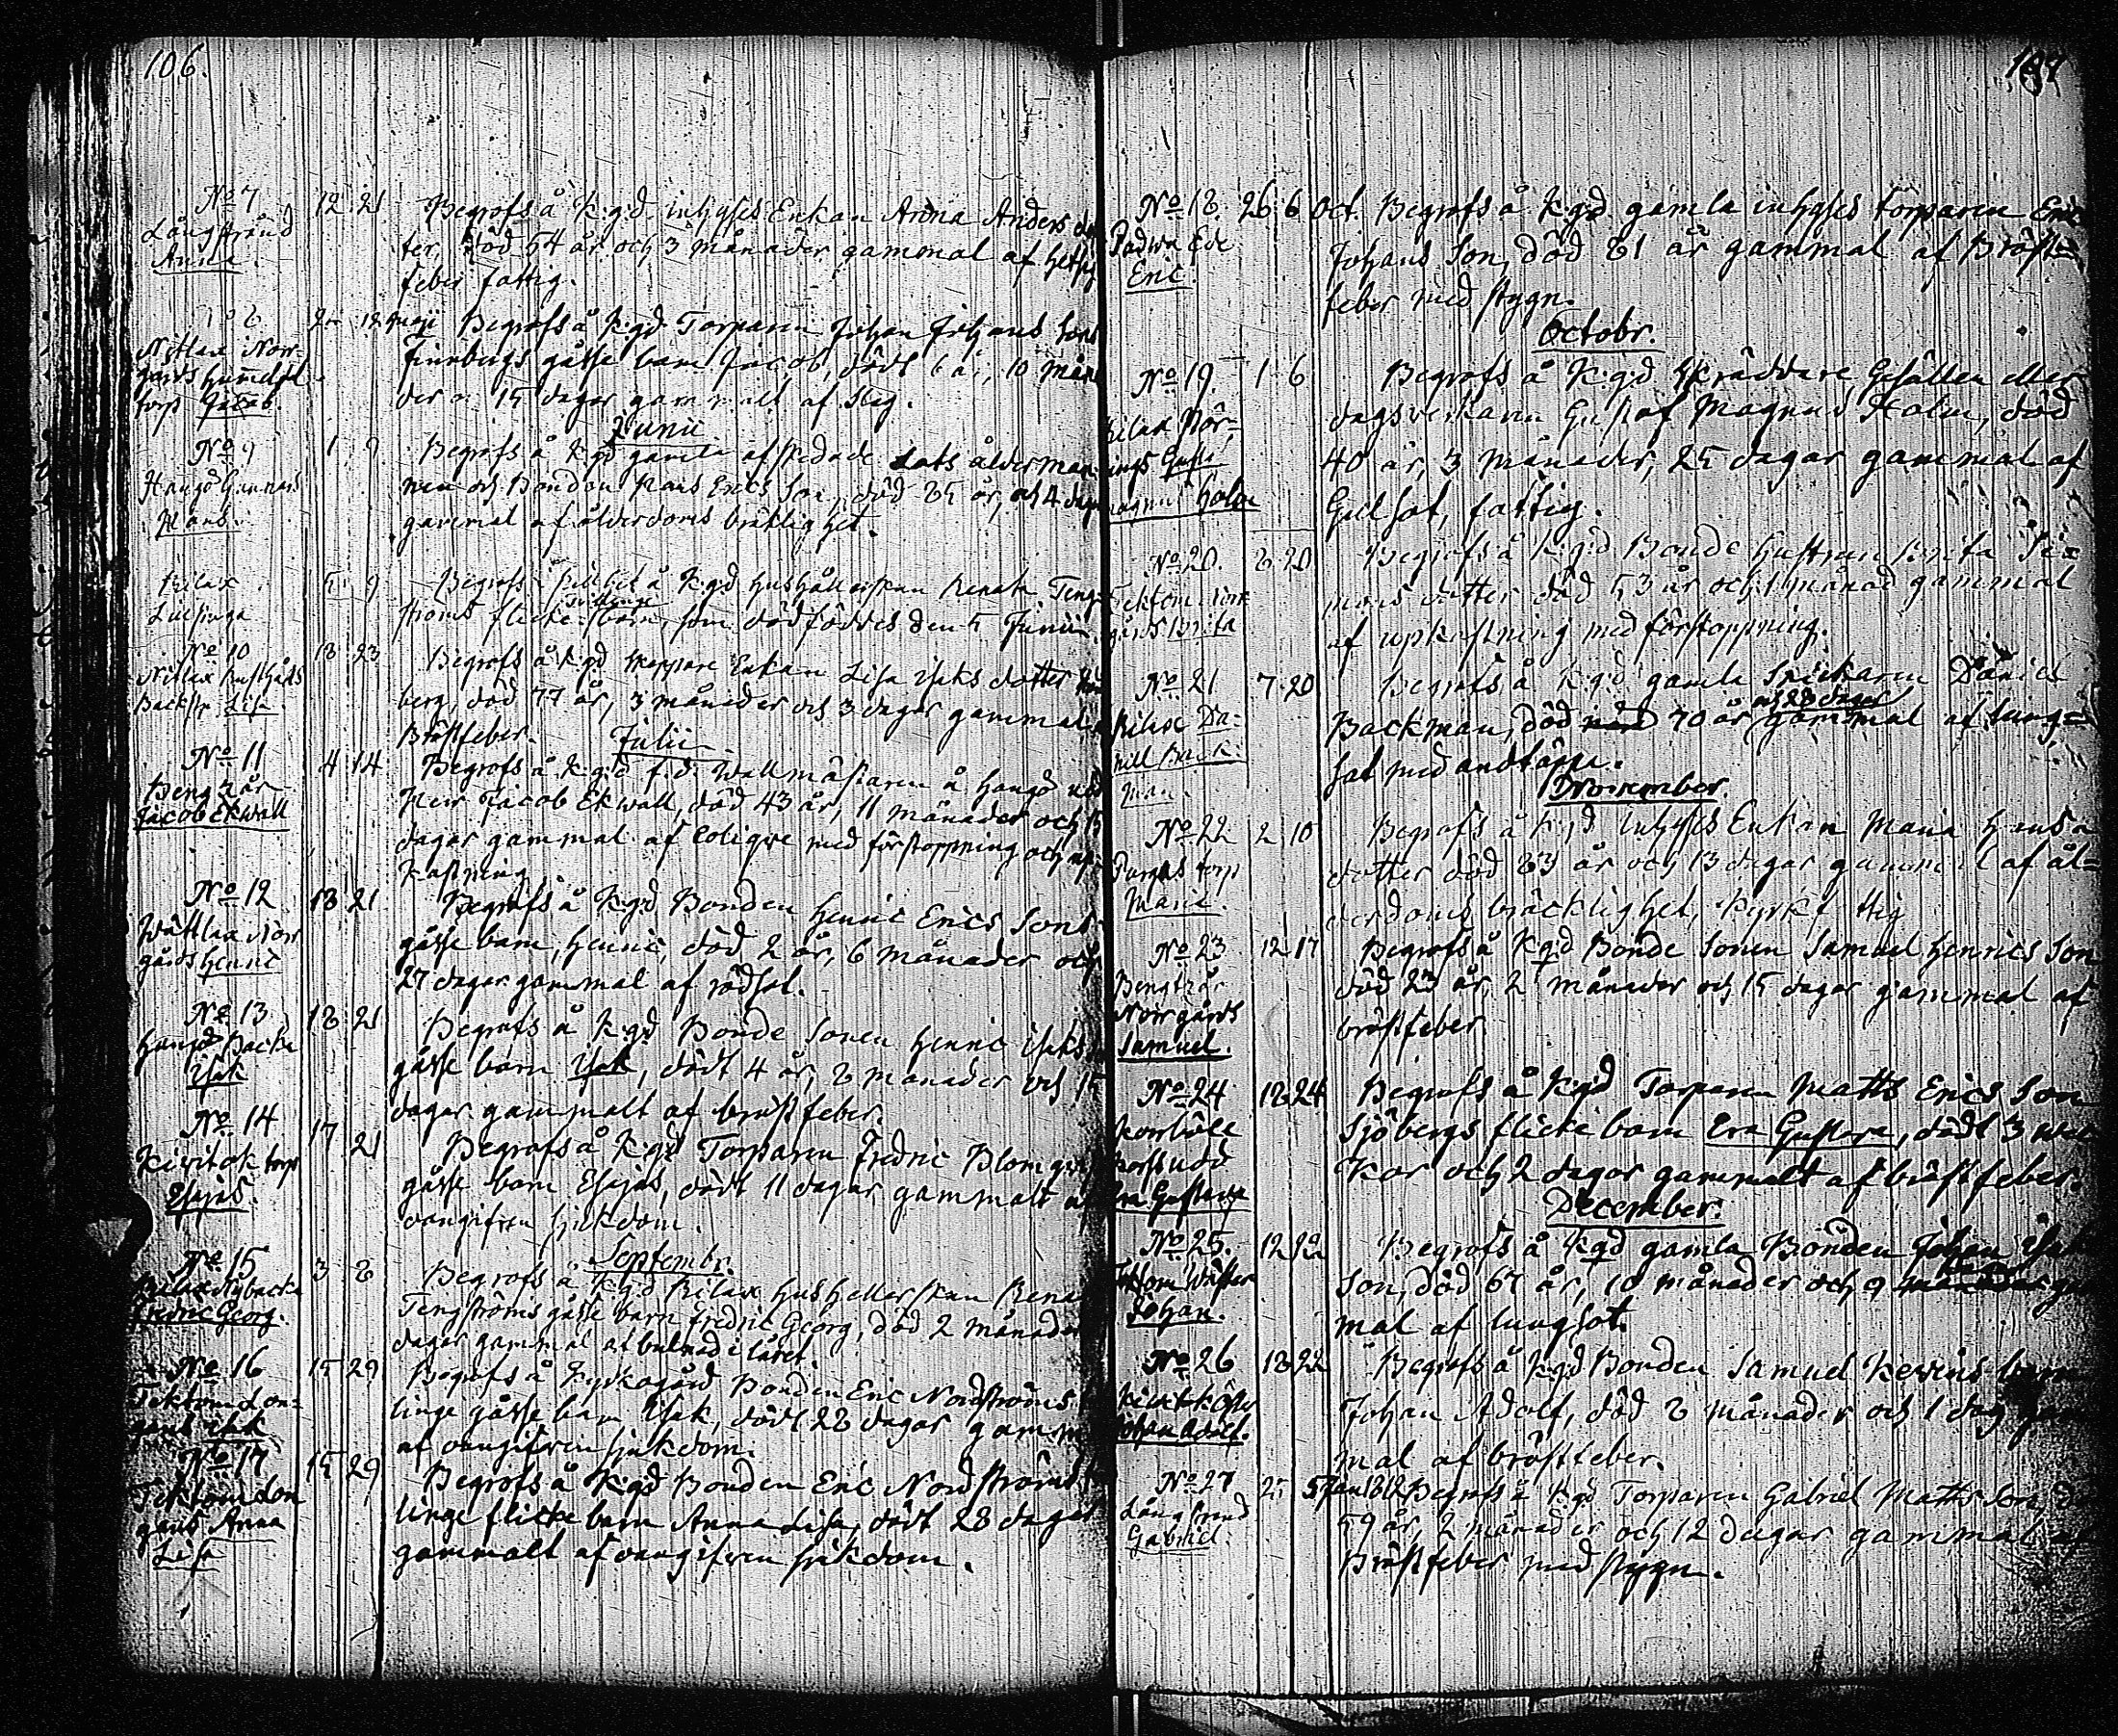 106.
No 7
Långstrand
Anna.
12 21
Begrofs å K:g:d. inhyses Enkan Anna Anders dot
ter, död 54 år och 3 månader gammal af hetsig
feber fattig.
No 8
Nitlax Norr-
gårds
torp Jacob.
12 Maji Begrofs å K:gd Torparen Johan Johans Sons
Finnbergs gåsse barn Jacob, dödt 6 år, 10 måna
der o. 15 dagar gammalt af slag.
Junii
No 9
Hangö Gunnars
Hans.
1 9
Begrofs å K:gd gamla afskedade Lots ålderman-
nen och Bonden Hans Erics Son, död 85 år, och 4 dagar
gammal af ålderdoms bräklighet.
Rilax
5 9
Begrofs i stillhet å K:gd hushållerskan Renata Teng-
ströms flicke barn, som dödföddes den 5 Junii.
No 10
Nitlax Rusthålls
Backst. Lisa.
18 23
Begrofs å K:gd skeppare Enkan Lisa Isaks dotter
berg, död 77 år, 3 månader och 3 dagar gammal
Bröstfeber.
Julii
No 11
Bengtsår
Jacob Ekwall
4 14
Begrofs å K:g:d f.d. Wallmästaren å Hangö udd
Herr Jacob Ekwall, död 43 år, 11 månader och 15
dagar gammal af Colique med förstoppning och up-
kastning.
No 12
Wättlax Norr
gårds Henric
18 21
Begrofs å K:gd Bonden Henric Erics Sons
gåsse barn, Henric, död 2 år, 6 månader och
27 dagar gammal af rödsot.
No 13
Hangö Backa
Isak
18 21
Begrofs å K:gd Bonde Sonen Henric Isaks
gåsse barn Isak, dödt 4 år, 8 månader och 15
dagar gammalt af bröstfeber.
No 14
Kivitok torp
Esajas.
17 21
Begrofs å K:gd Torparen Fredric Blomqvist
gåsse barn Esajas, dödt 11 dagar gammalt af
oangifven sjukdom.
Septembr.
No 15
Rilax Nybacka
Fredric Georg.
3 8
Begrofs å K:gd Rilax Hushållerskan Rena
Tengströms gåsse barn Fredric Georg, död 2 månader
dagar gammal af bulnad i låret.
No 16
Tektom Lon-
gans Isak
15 29
Begrofs å Kyrkogård Bonden Eric Nordströms
linge gåsse barn Isak, dödt 28 dagar gamm
af oangifven sjukdom.
No 17
Tektom Lon
gans Anna
Lisa
15 29
Begrofs å K:gd Bonden Eric Nordströms
linge flicke barn Anna Lisa, dödt 28 dagar
gammalt af oangifven sjukdom.
No 18.
Padva Ede
Eric.
26 6 Oct. Begrofs å K:gd gamla inhyses torparen Eric
Johans Son, död 81 år gammal af Bröst-
feber med stygn.
Octobr.
No 19
Rilax
Gust.
Magnus Holm
1 6
Begrofs å K:gd Skräddare Gesällen eller
dagsverkaren Gustaf Magnus Holm, död
40 år, 3 månader, 25 dagar gammal af
Gulsot, fattig.
No 20.
Tektom Norr
gårds Brita
8 20
Begrofs å K:gd Bonde hustrun Brita Si
mons dotter död 53 år och 1 månad gammal
af upkastning med förstoppning.
No 21
Rilax Da-
niel Back-
man.
7 20
Begrofs å K:g:d gamla Snickaren Daniel
Backman, död 70 år och 28 dagar gammal af lung-
sot med andtäppa.
November.
No 22
torp
Maria.
2 10
Begrofs å K:gd Inhyses Enkan Maria Hans
dotter död 83 år och 13 dagar gammal af ål-
derdoms bräcklighet, Kyrkfattig
No 23
Bengtsår
Norrgårds
Samuel.
12 17
Begrofs å K:gd Bonde Sonen Samuel Henrics Son
död 23 år, 2 månader och 15 dagar gammal af
bröstfeber
No 24
Korsböle
udd
Eva Gustava
18 24
Begrofs å K:gd Torparen Matts Erics Son
Sjöbergs flicke barn Eva Gustava, dödt 3 vec
kor och 2 dagar gammalt af bröstfeber.
December.
No 25.
Tektom Wäster
Johan.
12 22
Begrofs å K:gd gamla Bonden Johan Isaks
Son, död 67 år, 10 månader och 9 gam
mal af lungsot.
No 26
Kivitok Öfver
Johan Adolf.
18 22
Begrofs å K:gd Bonden Samuel Kevins barn
Johan Adolf, död 8 månader och 1 dag gam
mal af bröstfeber.
No 27
Långstrand
Gabriel.
25 5 Jan 1812 Begrofs å K:gd Torparen Gabriel Matts Son, död
59 år, 2 månader och 12 dagar gammal af
Bröstfeber med stygn.